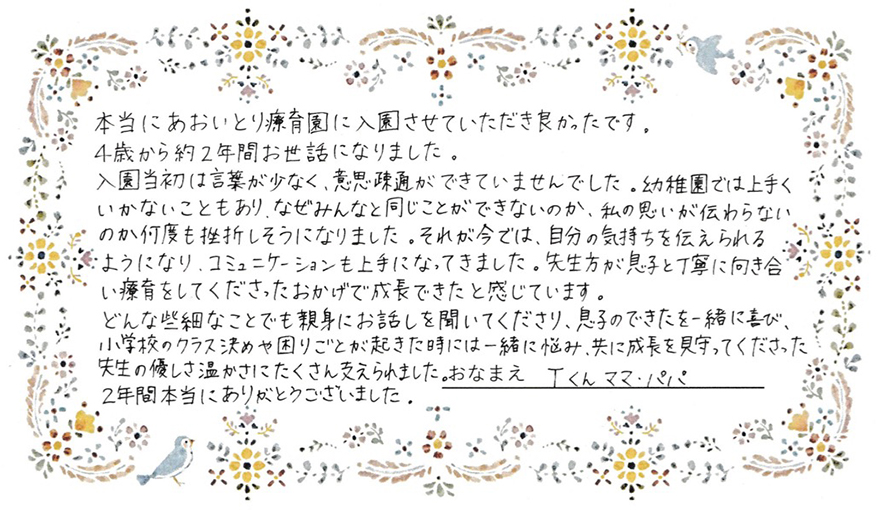 本当にあおいとり療育園に入園させていただき良かったです。
4歳から約2年間お世話になりました。
入園当初は言葉が少なく、意思疎通ができていませんでした。幼稚園では上手く
いかないこともあり、なぜみんなと同じことができないのか、私の思いが伝わらない
のか何度も挫折しそうになりました。それが今では、自分の気持ちを伝えられる
ようになり、コミュニケーションも上手になってきました。先生方が息子と丁寧に向き合
い療育をしてくださったおかげで成長できたと感じています。
どんな些細なことでも親身にお話しを聞いてくださり、息子のできたを一緒に喜び、
小学校のクラス決めや困りごとが起きた時には一緒に悩み、共に成長を見守ってくださった
先生の優しさ温かさにたくさん支えられました。おなまえ Tくん ママ・パパ
2年間本当にありがとうございました。